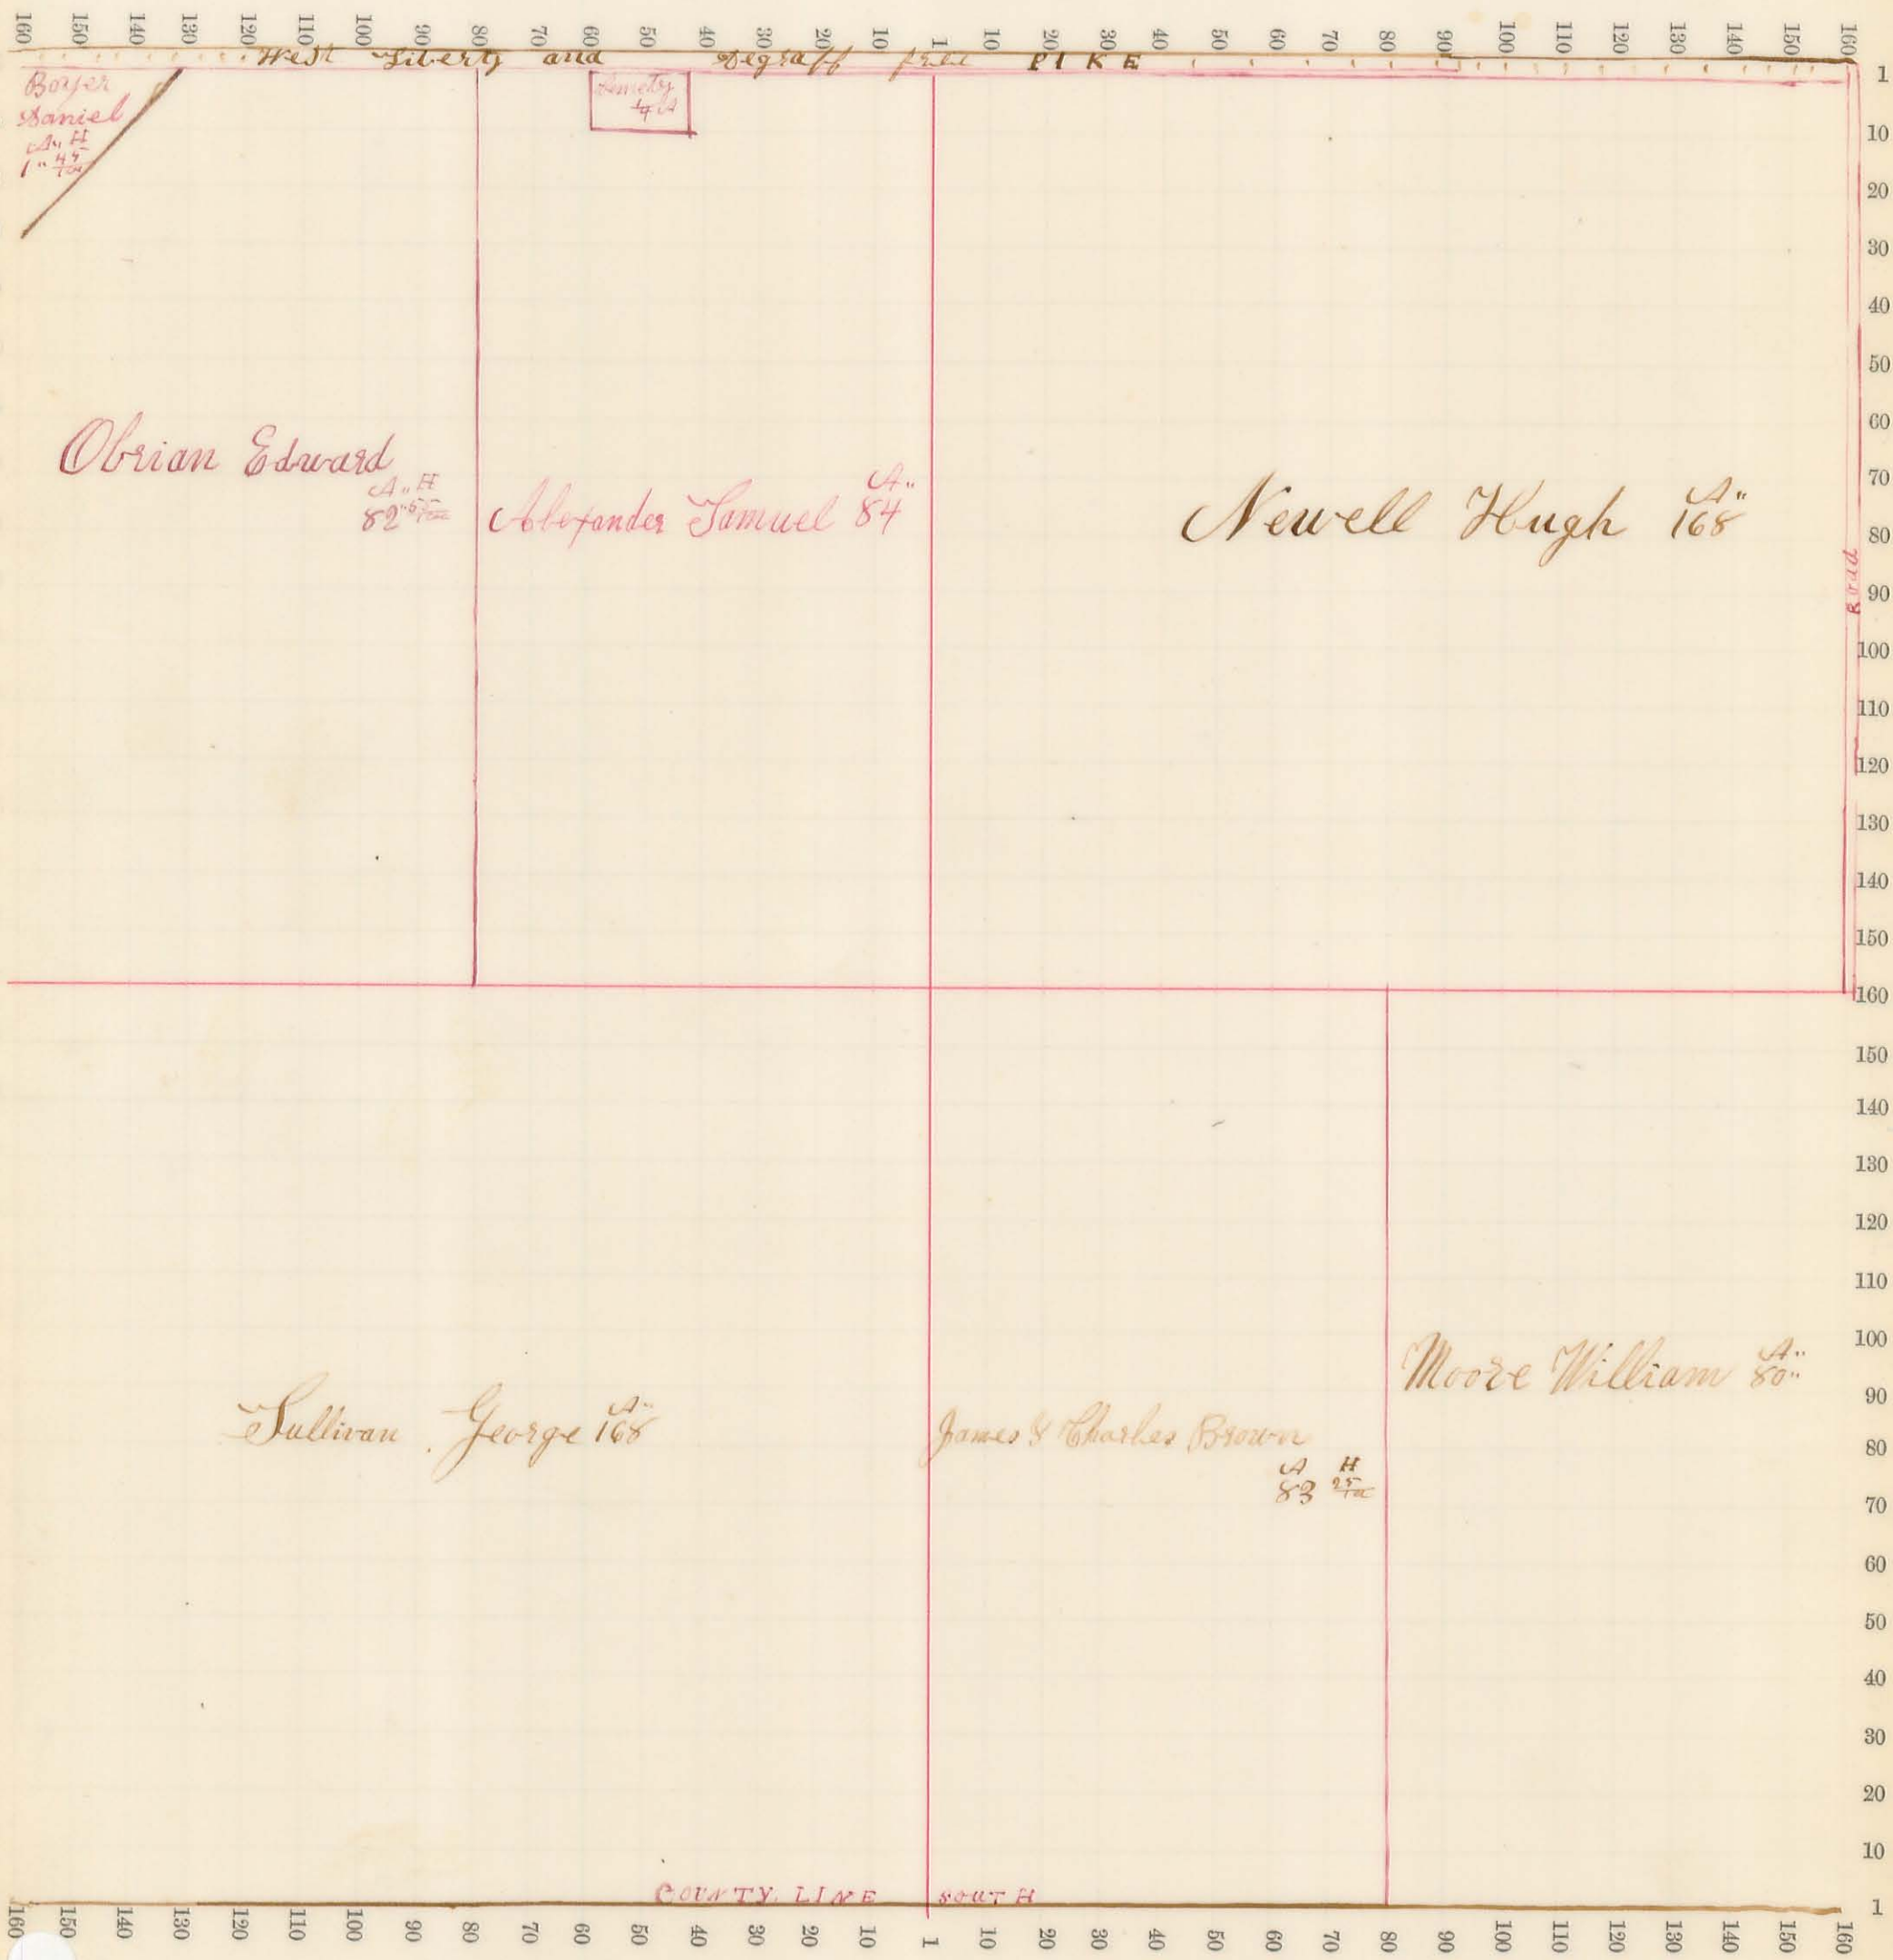 160 150 140 130 120 110 100 90 80 70 60 50 40 30 20 10 1 10 20 30 40 50 60 70 80 90 100 110 120 130 140 150 160
West Liberty and Degraff free PIKE
Boyer
Daniel
A.. H
1.. 45/100
Cemety
1/4 A
Obrian Edward
A.. H
82..
Alexander Samuel 84
A..
Newell Hugh 168
A..
Road
1
10
20
30
40
50
60
70
80
90
100
110
120
130
140
150
160
150
140
130
120
110
100
90
80
70
60
50
40
30
20
10
1
Sullivan George 168
A..
James & Charles Brown
A H
83 25/100
Moore William 80..
A..
COUNTY LINE SOUTH
160 150 140 130 120 110 100 90 80 70 60 50 40 30 20 10 1 10 20 30 40 50 60 70 80 90 100 110 120 130 140 150 160